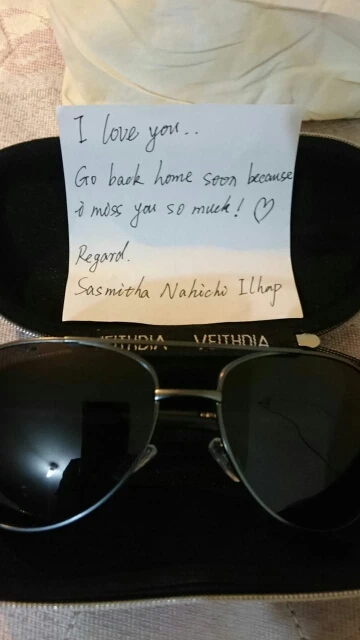 I love you..
Go back home soon because
i miss you so much! ♡
Regard.
Sasmitha Nahichi Ilhap
VEITHDIA VEITHDIA